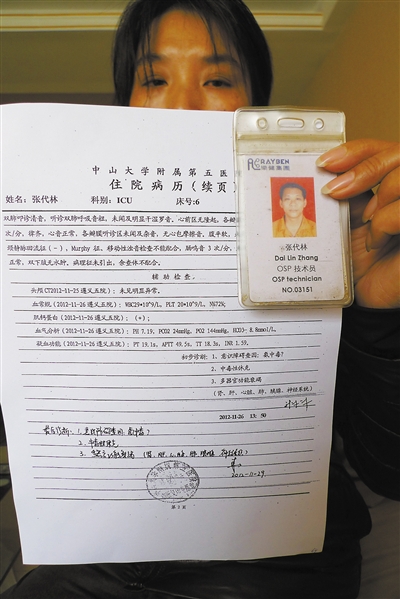 中山大学附属第五医
住院病历(续页)
姓名:张代林 科别:ICU 床号:6
双肺叩诊清音,听诊双肺呼吸音粗,未闻及明显干湿罗音,心前区无隆起,各瓣
次/分,律齐,心音正常,各瓣膜听诊区未闻及杂音,无心包摩擦音,腹平软,
颈静脉回流征(-),Murphy 征,移动性浊音检查不能配合,肠鸣音 3 次/分,
正常,双下肢无水肿,病理征未引出,余查体不配合。
辅助检查:
头颅CT2012-11-25 遵义五院):未见明显异常。
血常规(2012-11-26 遵义五院):WBC29*10^9/L,PLT 20*10^9/L,N%72%;
肌钙蛋白(2012-11-26 遵义五院):(+);
血气分析(2012-11-26 遵义五院):PH 7.19,PCO2 24mmHg,PO2 144mmHg,HCO3- 8.8mmol/L。
凝血功能(2012-11-26 遵义五院):PT 19.1s,APTT 49.5s,TT 18.3s,INR 1.59。
初步诊断:1. 意识障碍查因:氨中毒?
2. 中毒性休克
3. 多器官功能衰竭
(肾、肝、心脏、肺、胰腺、神经系统)
2012-11-26 13:50
最后诊断:1.
2. 中毒性休克
3.
2012-11-29
第 2 页
RAYBEN
张代林
Dai Lin Zhang
OSP 技术员
OSP technician
NO.03151